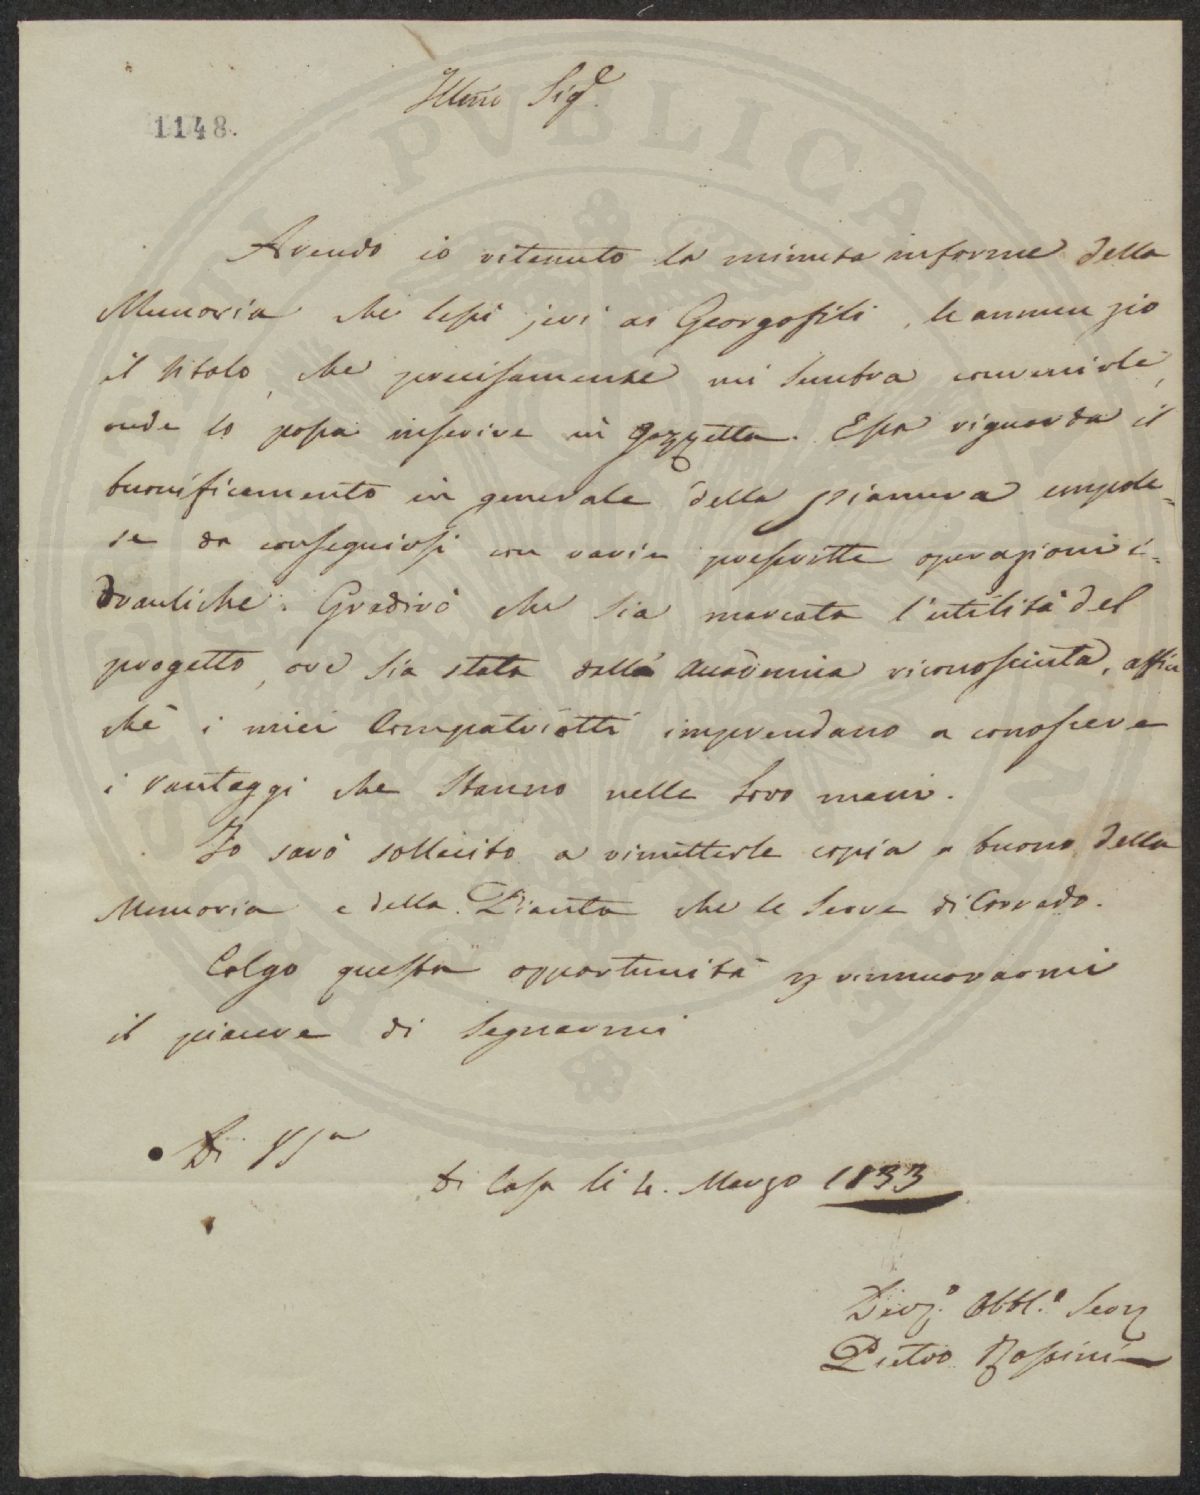 Illmo Sigre
1148.
Avendo io ritenuto la minuta informe della
Memoria che lessi jeri ai Georgofili, le annunzio
il titolo, che precisamente mi sembra convenirle,
onde lo possa inserire in Gazzetta. Essa riguarda il
buonificamento in generale della pianura empole=
se da conseguirsi con varie prescritte operazioni i=
drauliche. Gradirò che sia marcata l'utilità del
progetto, ove sia stata dalla Accademia riconosciuta, affin
chè i miei Compatriotti imprendano a conoscere
i vantaggi che stanno nelle loro mani.
Io sarò sollecito a rimetterle copia a buono della
Memoria e della Pianta che le serve di Corredo.
Colgo questa opportunità p rinnuovarmi
il piacere di segnarmi
Di VSa
Di Casa li 4. Marzo 1833
Devo. Obblo Serv
Pietro Rossini